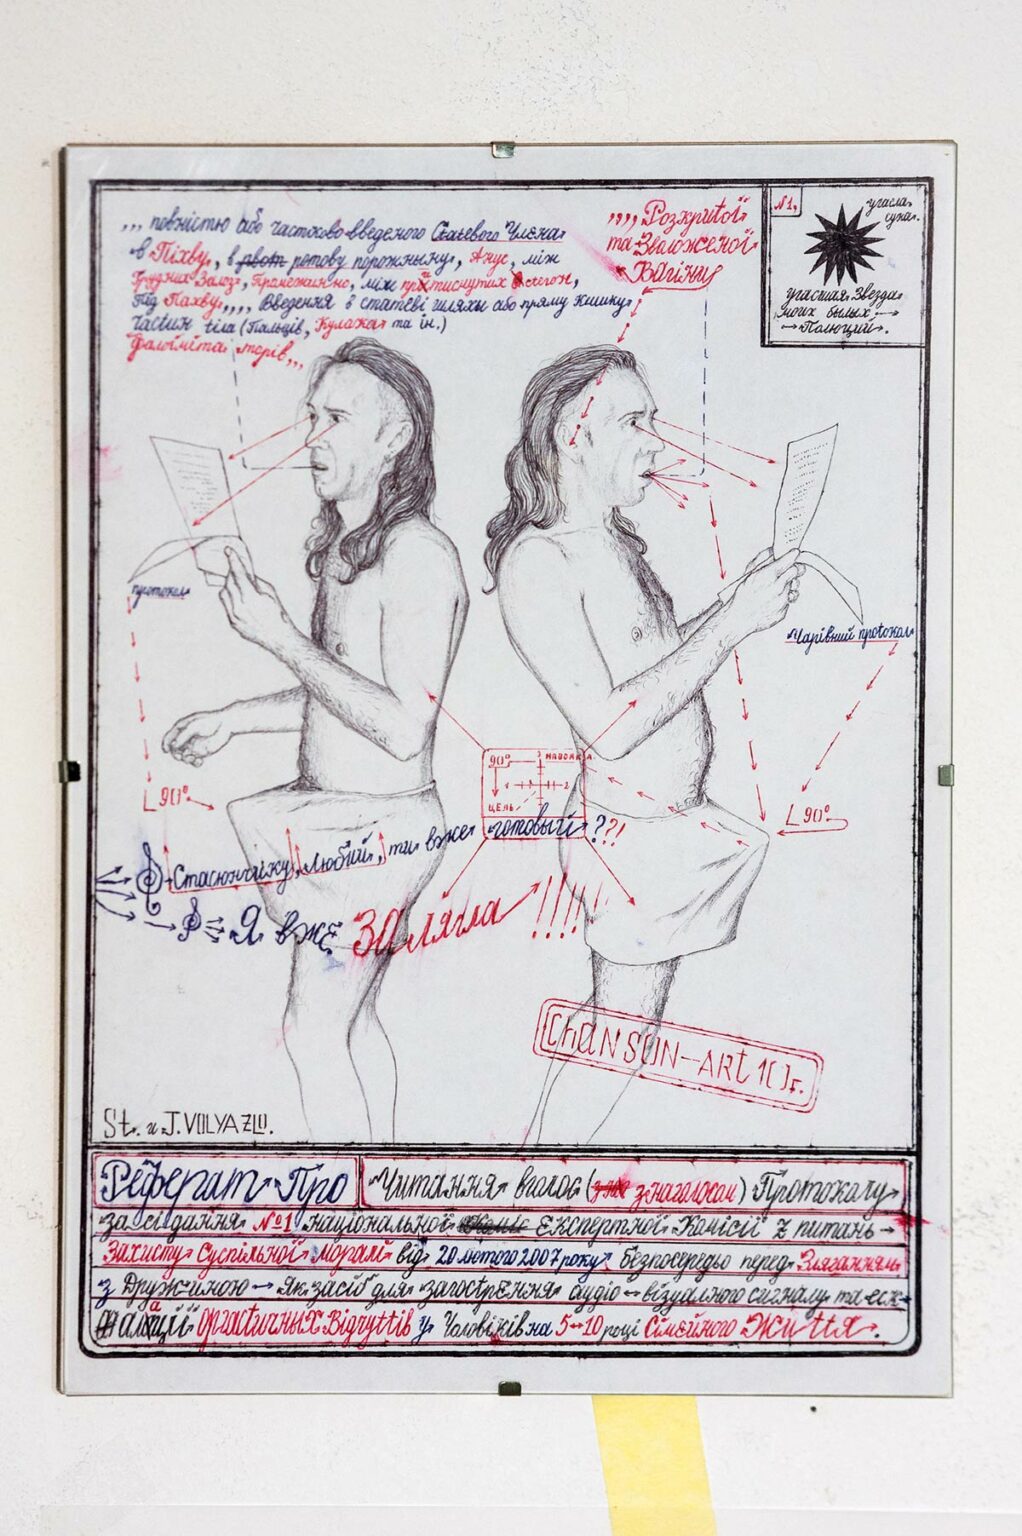 ,,, повністю або частково введеного Статевого Члена
в Піхву, в ротову порожнину, Анус, між
Грудних Залоз, між притиснутих
під Пахву,,,, Введення в статеві шляхи або пряму кишку
частин тіла (Пальців, Кулака та ін.)
,,,, Розкритої
та Зволоженої
Вагіни
№1
угасла
сука.
угасшая Звезда
моих былых
Полюций.
протокол
Чарівний протокол
90°
90°
90° НАВОДКА
ЦЕЛЬ
Стасюнчику, Любий, ти вже готовый ??!
Я вже ЗАлягла !!!!!
ChANSON-ARt 10г.
St. и J. VOLYAZLO.
Реферат Про Читання вголос (з наголосом) Протоколу
засідання №1 національної Експертної Комісії з питань
Захисту Суспільної моралі від 20 лютого 2007 року, безпосередьо перед Зляганням
з Дружиною → Як засіб для загострення аудіо-візуального сигналу та еск-
алації оргастичных Відчуттів у Чоловіків на 5-10 році Сімейного Життя.